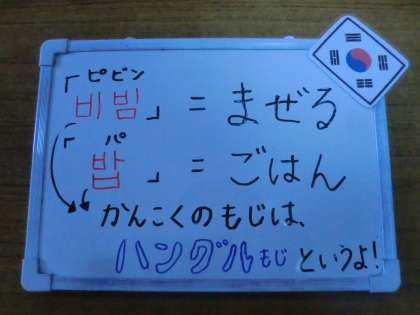 ピビン
「비빔」=まぜる
パ
「밥」=ごはん
かんこくのもじは、
ハングルもじというよ!